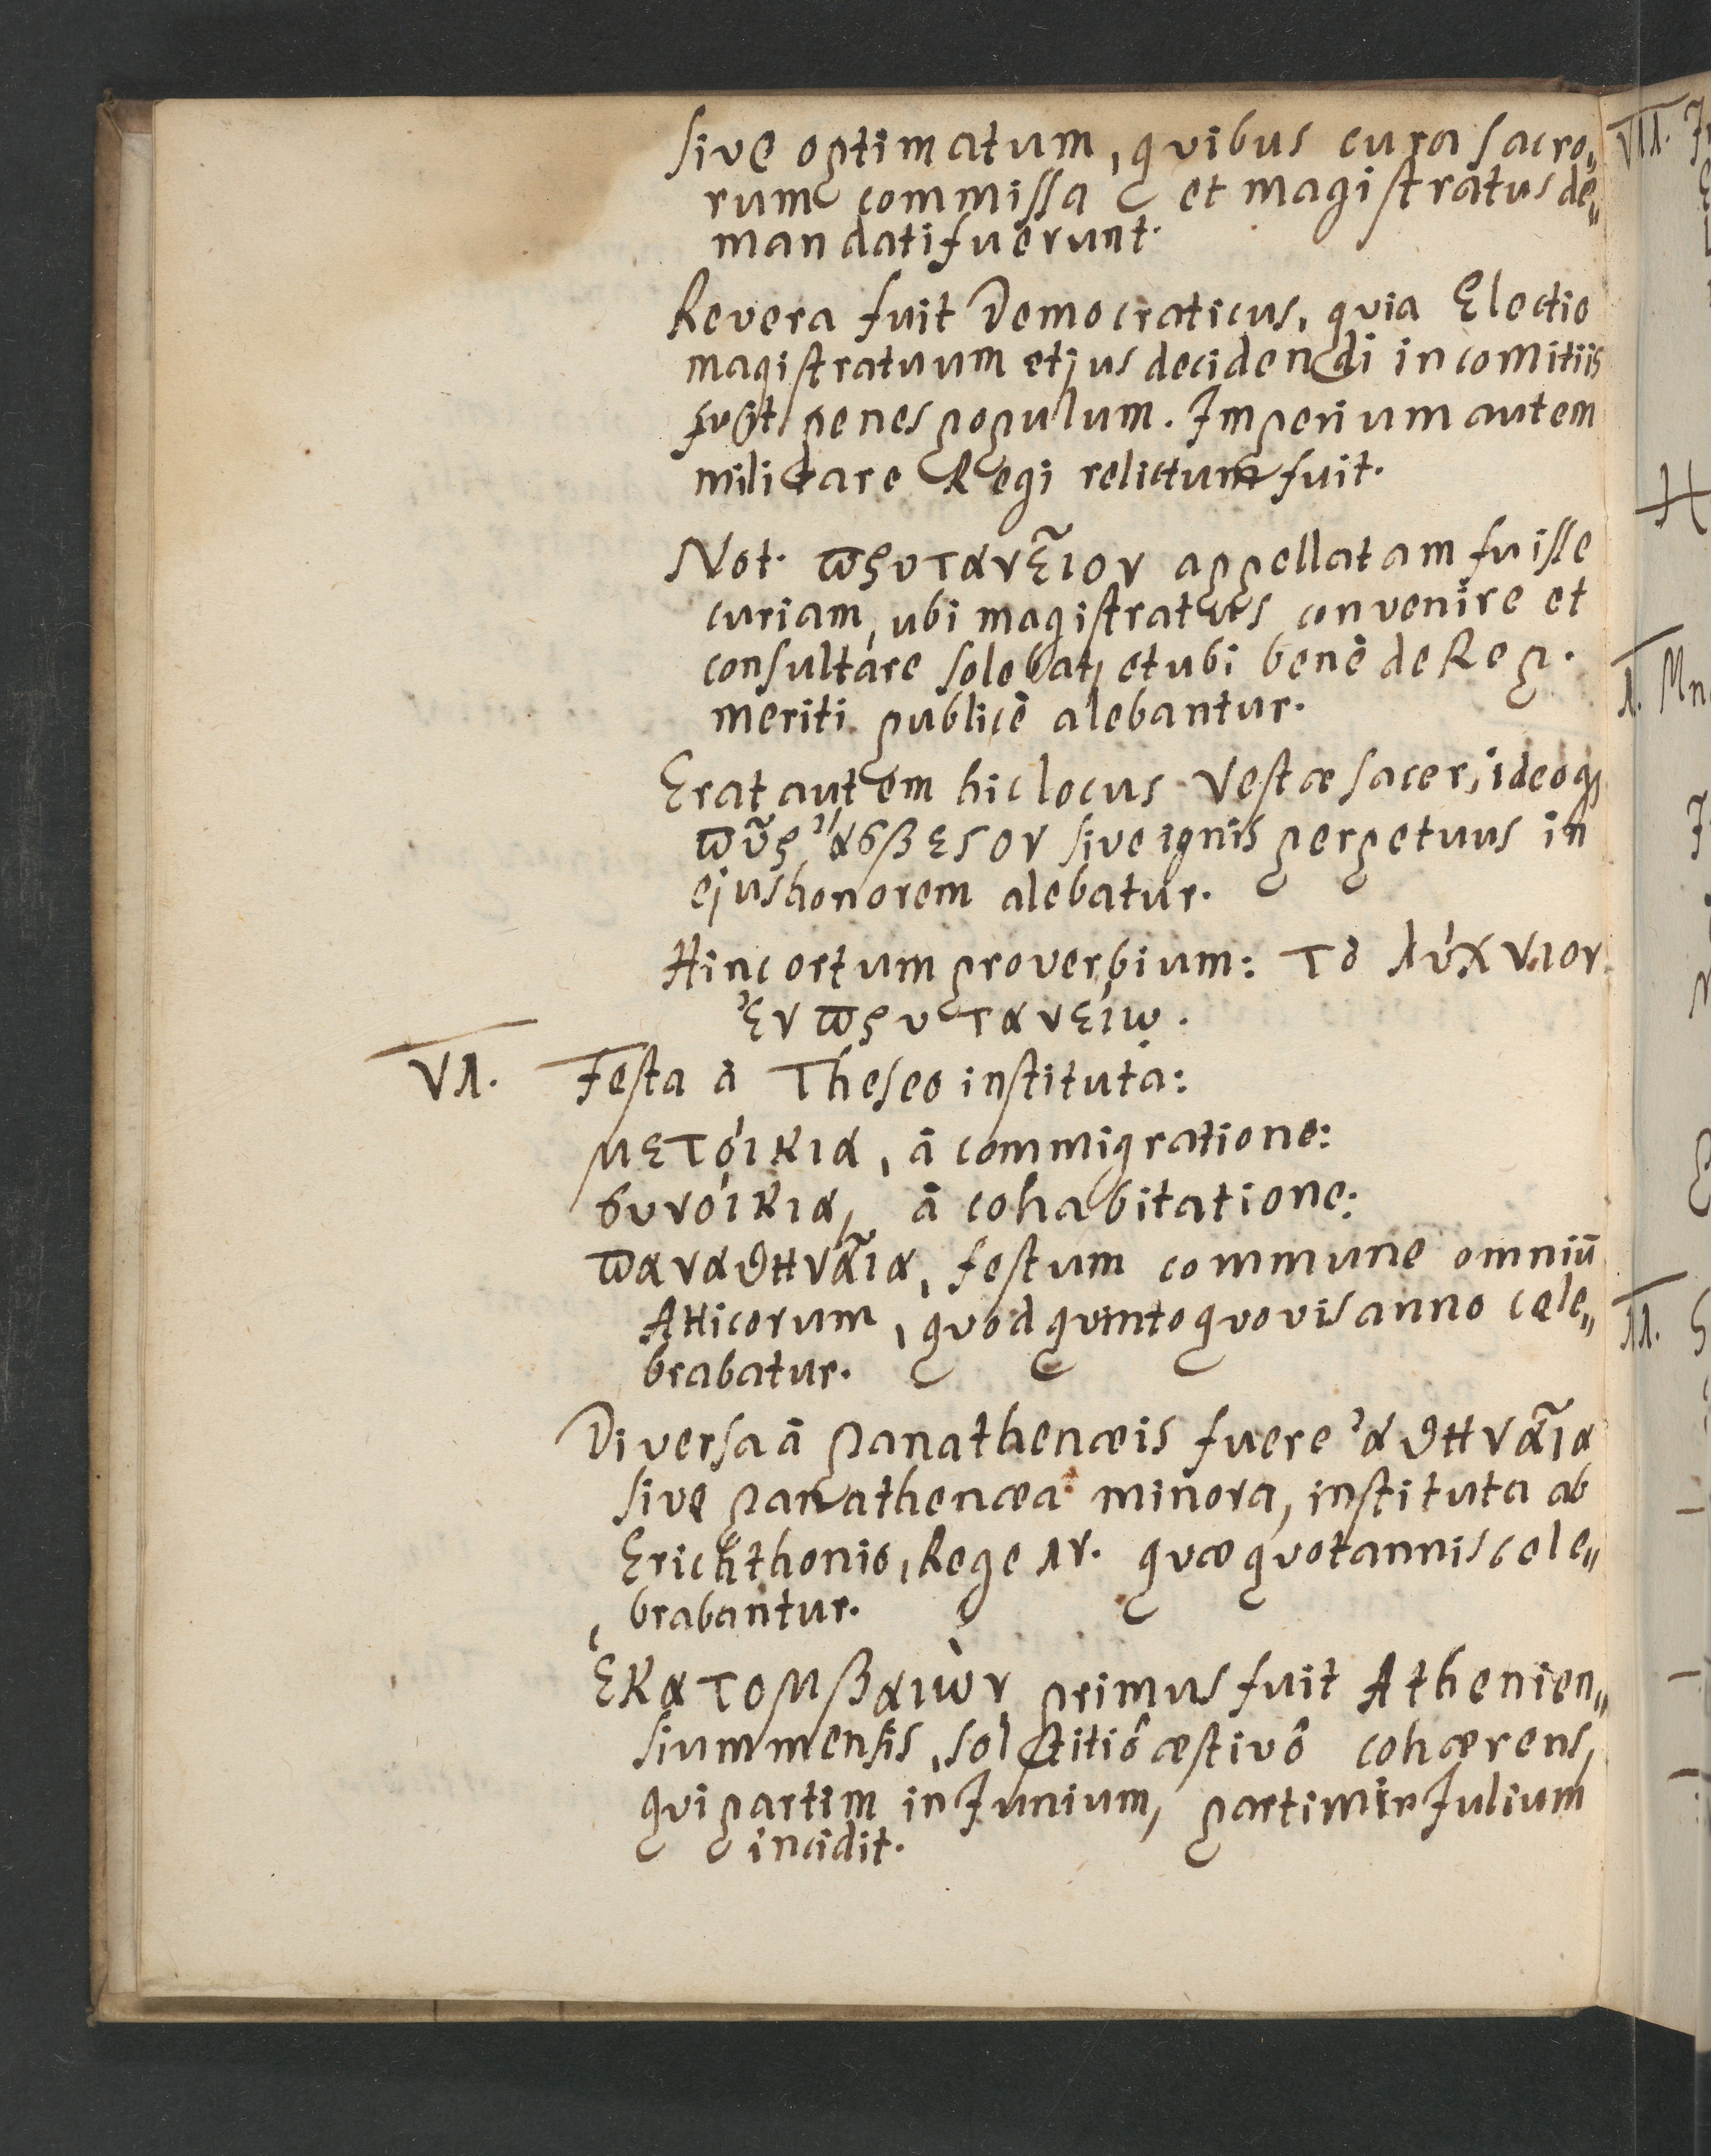 sive optimatum, quibus cura sacro„
rum commissa et magistratus de„
mandati fuerunt.
Revera fuit Democraticus, quia Electio
magistratuum et jus decidendi in comitiis
fuit penes populum. Imperium autem
militare Regi relictum fuit.
Not. ϖρυτανε͂ιον appellatam fuisse
curiam, ubi magistratus convenire et
consultare solebat, et ubi benè de Rep.
meriti publicè alebantur.
Erat autem hic locus Vestæ sacer, ideoq;
ϖῦρ ἄσβεςον sive ignis perpetuus in
ejus honorem alebatur.
Hinc ortum proverbium: Τὸ λύχνιον
ἐν ϖρυτανείῳ.
VI. Festa à Theseo instituta:
μετόικια, â commigratione:
συνόικια, â cohabitatione:
ϖαναθηνᾶια, festum commune omniū
Atticorum, quod quinto quovis anno cele„
brabatur.
Diversa â Panathenæis fuere ἀθηνᾶια
sive Panathenæa minora, instituta ab
Erichthonio, Rege IV. quæ quotannis cele„
brabantur.
ἑκατομβαιὼν primus fuit Athenien„
sium mensis, solstitiô æstivô cohærens,
qui partim in Junium, partim in Julium
incidit.
VII.
I.
II.